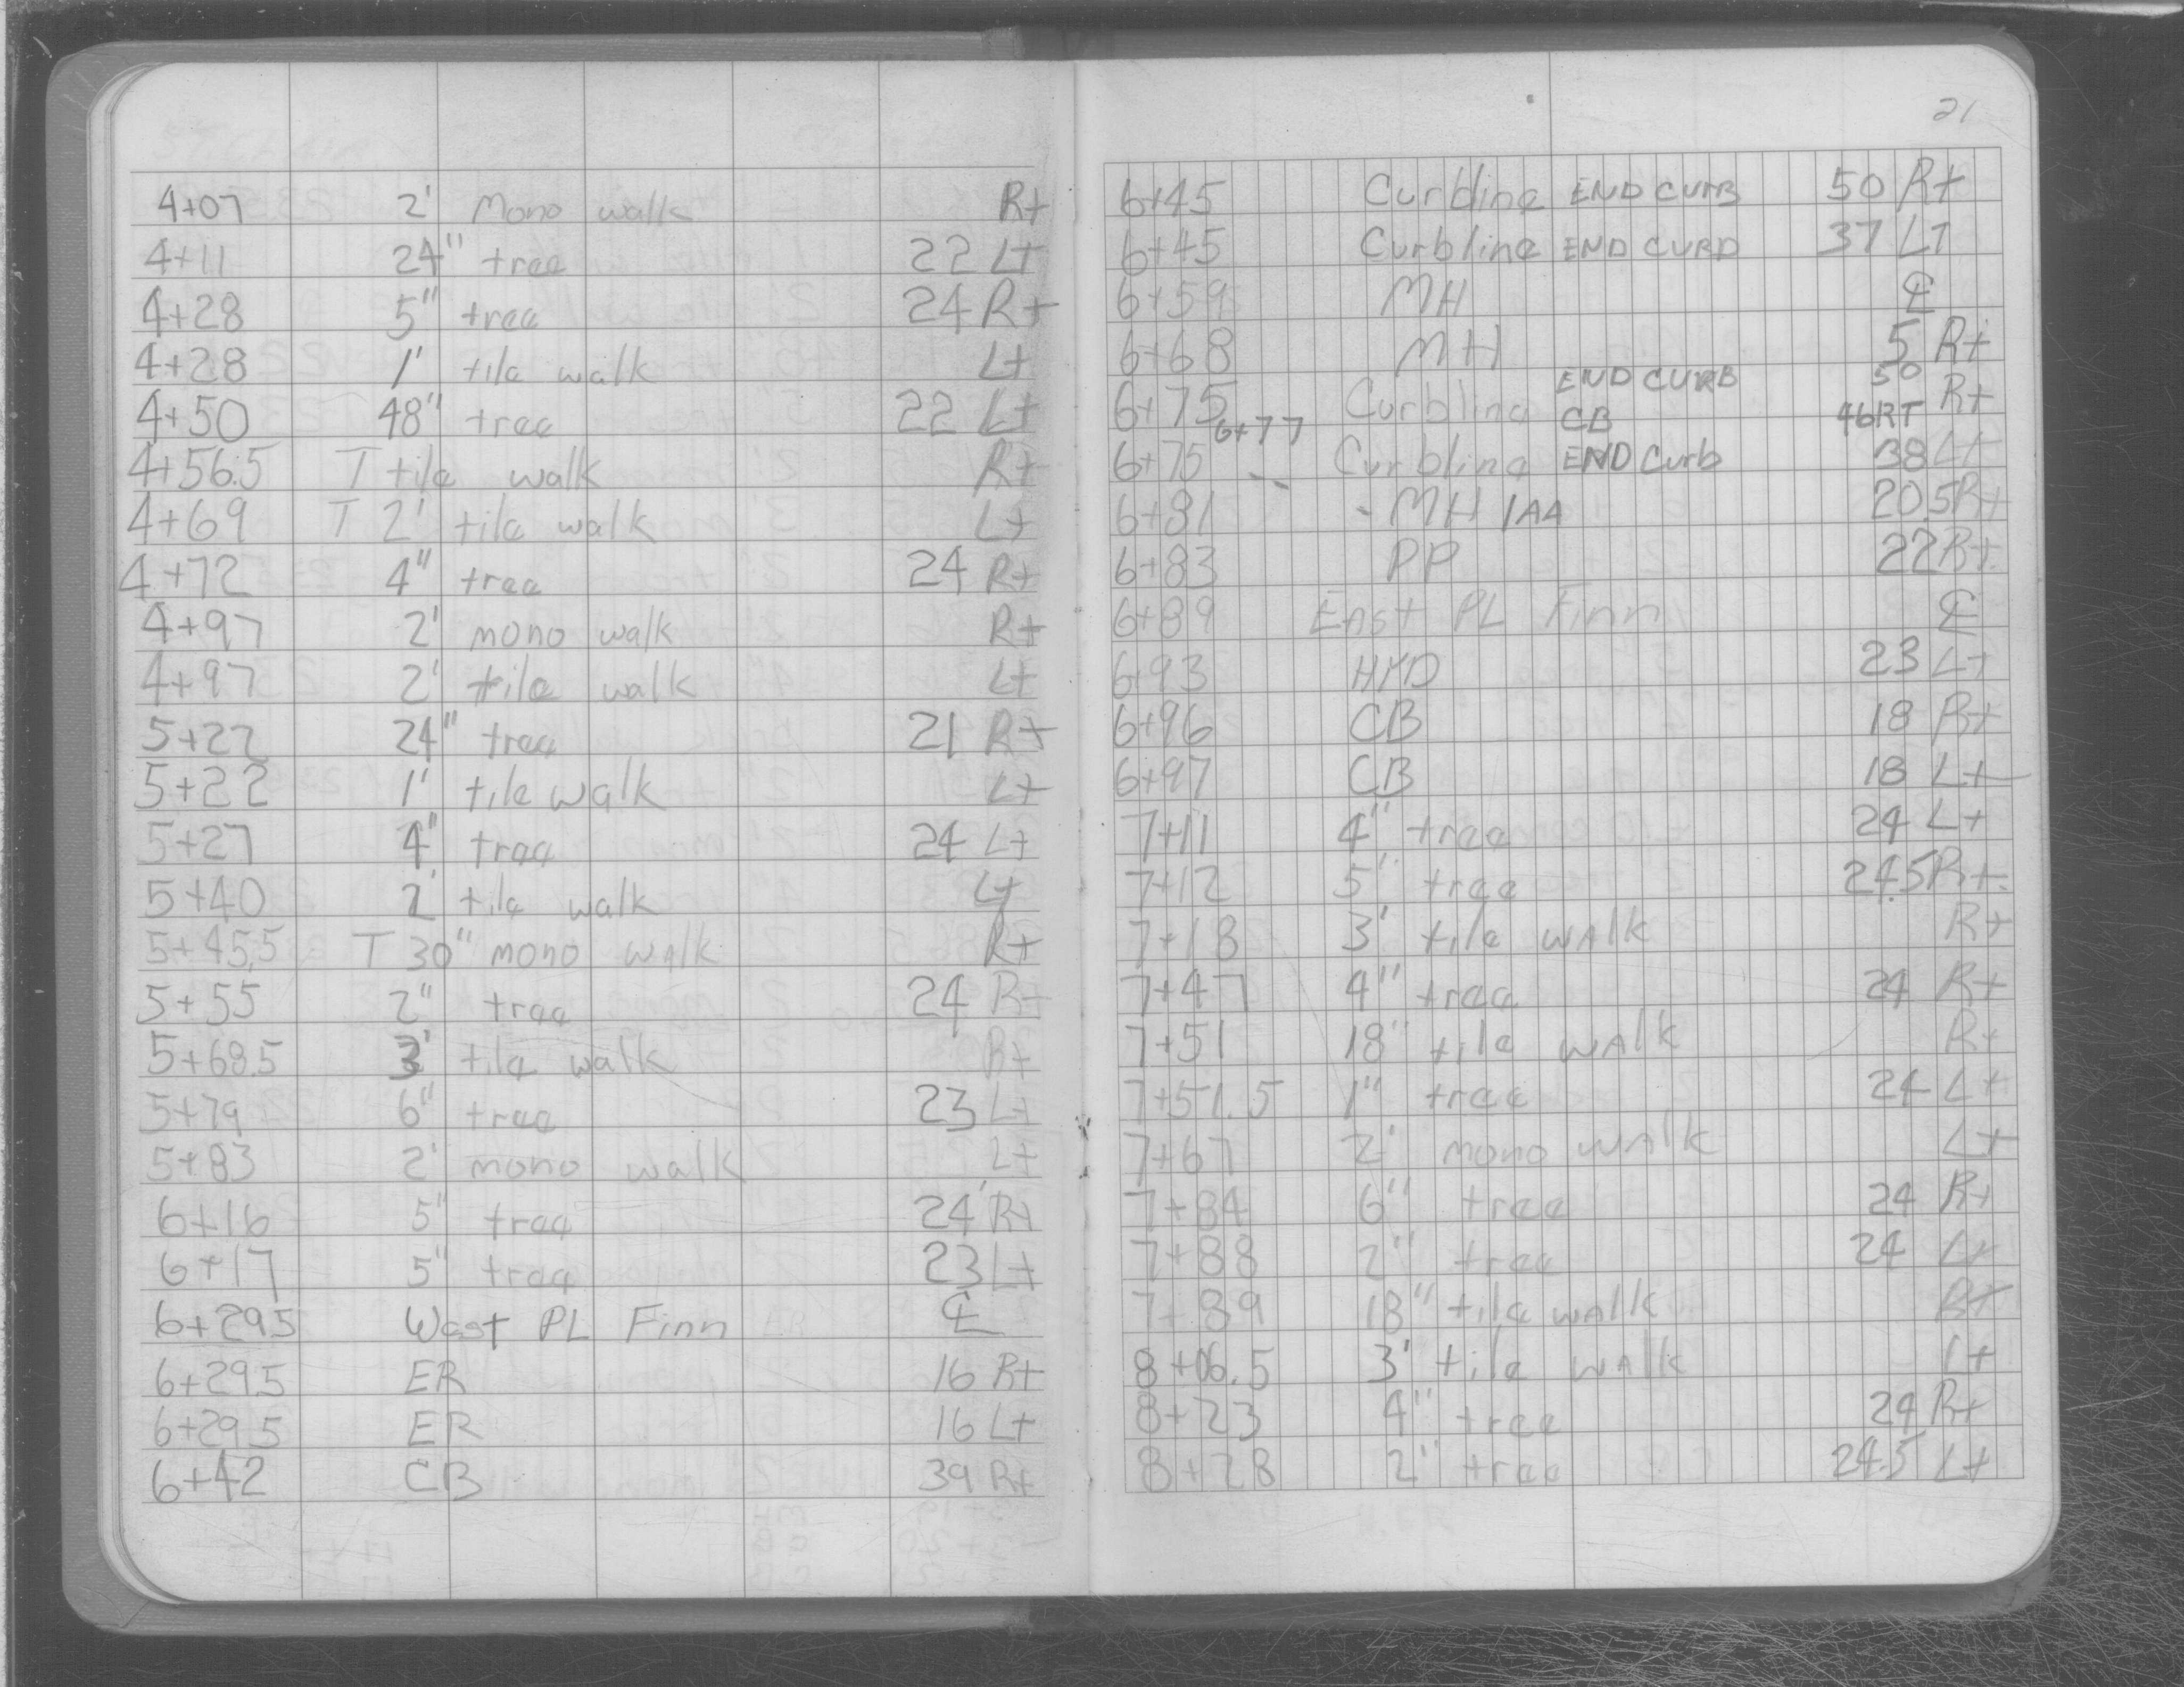 4+07 2' Mono walk Rt
4+11 24" tree 22 Lt
4+28 5" tree 24 Rt
4+28 1' tile walk Lt
4+50 48" tree 22 Lt
4+56.5 T tile walk Rt
4+69 T 2' tile walk Lt
4+72 4" tree 24 Rt
4+97 2' mono walk Rt
4+97 2' tile walk Lt
5+22 24" tree 21 Rt
5+22 1' tile walk Lt
5+27 4" tree 24 Lt
5+40 2' tile walk Lt
5+45.5 T 30" mono walk Rt
5+55 2" tree 24 Rt
5+68.5 3' tile walk Rt
5+79 6" tree 23 Lt
5+83 2' mono walk Lt
6+16 5" tree 24 Rt
6+17 5" tree 23 Lt
6+29.5 West PL Finn ℄
6+29.5 ER 16 Rt
6+29.5 ER 16 Lt
6+42 CB 39 Rt
21
6+45 Curbline END CURB 50 Rt
6+45 Curbline END CURB 37 LT
6+59 MH ℄
6+68 MH 5 Rt
6+75 Curbline END CURB 50 Rt
6+77 CB 46RT
6+75 Curbline END Curb 38 Lt
6+81 MH 1AA 20.5 Rt
6+83 PP 22 Rt
6+89 East PL Finn ℄
6+93 HYD 23 Lt
6+96 CB 18 Rt
6+97 CB 18 Lt
7+11 4" tree 24 Lt
7+12 5" tree 24.5 Rt
7+18 3' tile walk Rt
7+47 4" tree 24 Rt
7+51 18" tile walk Rt
7+51.5 1" tree 24 Lt
7+67 2' mono walk Lt
7+84 6" tree 24 Rt
7+88 2" tree 24 Lt
7+89 18" tile walk Rt
8+06.5 3' tile walk Lt
8+23 4" tree 24 Rt
8+28 2" tree 24.5 Lt